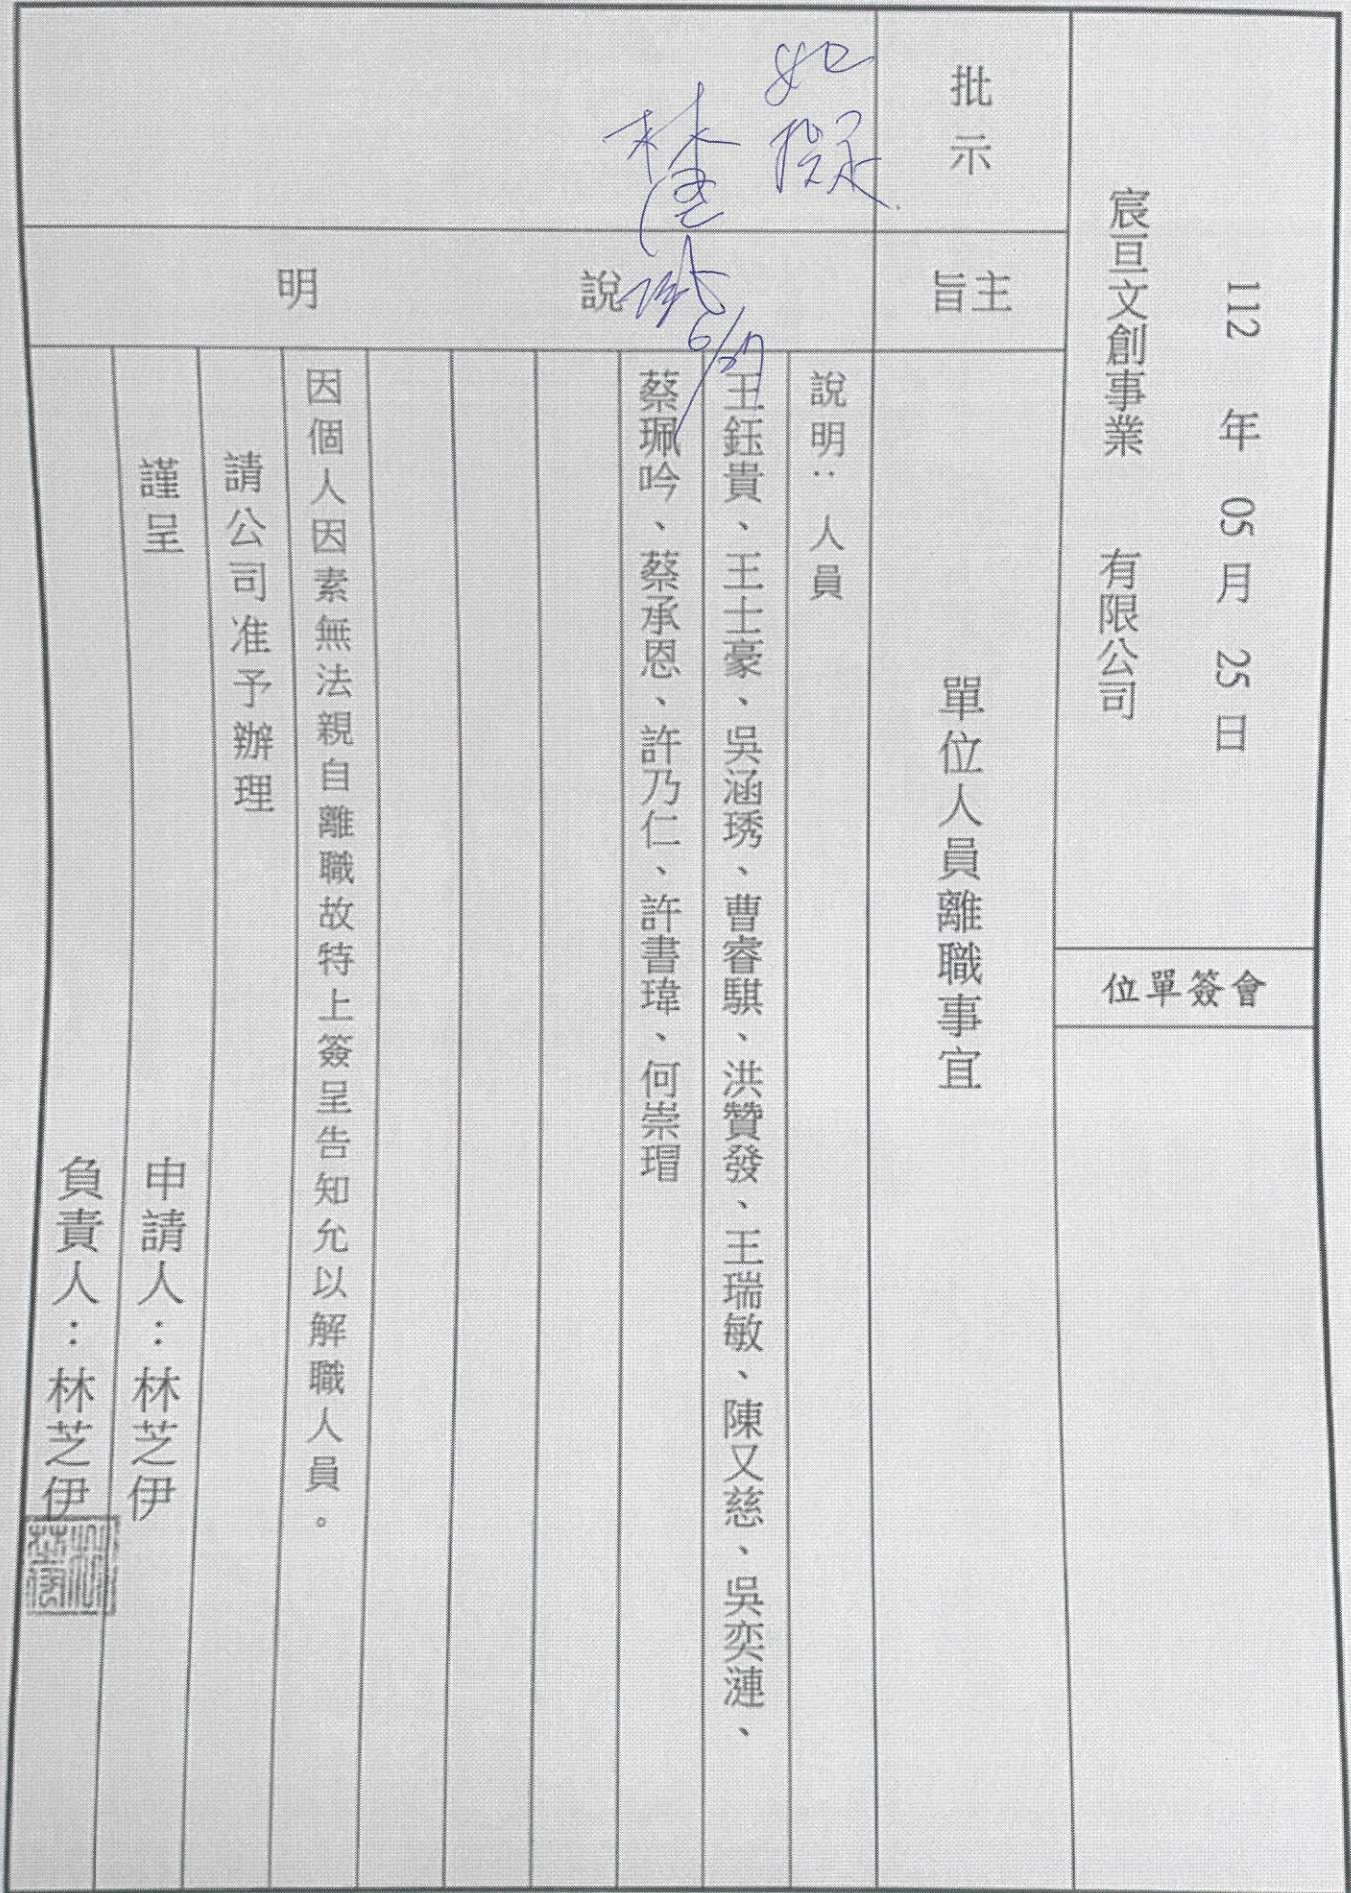 112 年 05 月 25 日
宸亘文創事業 有限公司
會簽單位
批示
主旨
單位人員離職事宜
如擬
林
6/27
說明
說明：人員
王鈺貴、王士豪、吳涵琇、曹睿騏、洪贊發、王瑞敏、陳又慈、吳奕漣、
蔡珮吟、蔡承恩、許乃仁、許書瑋、何崇瑁
因個人因素無法親自離職故特上簽呈告知允以解職人員。
請公司准予辦理
謹呈
申請人：林芝伊
負責人：林芝伊